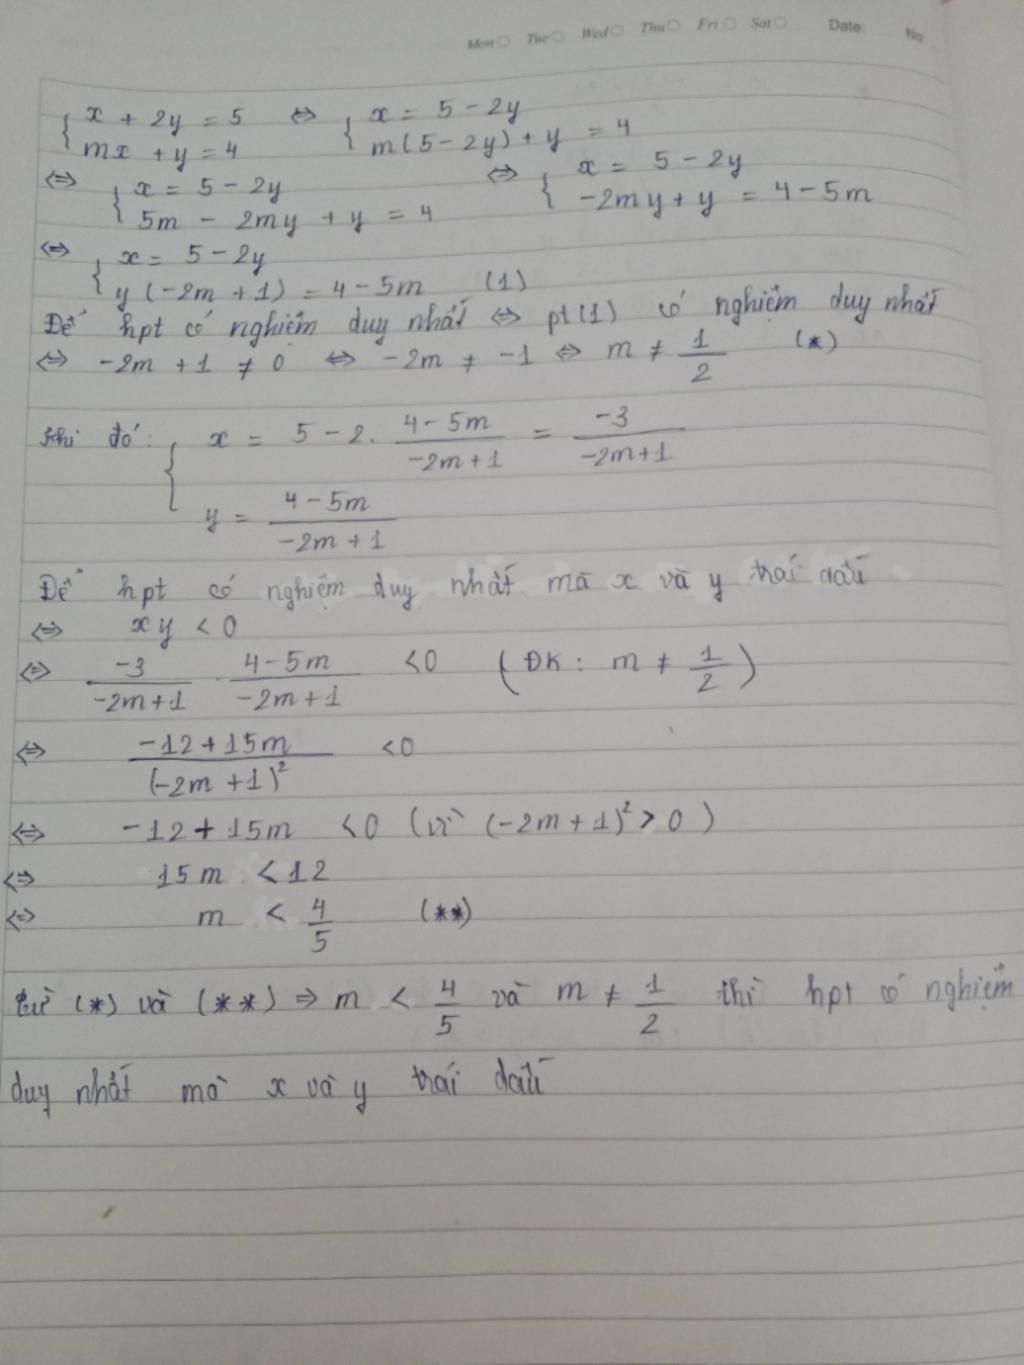 Mon Tue Wed Thu Fri Sat Date: No.
{ x + 2y = 5 ⇔ { x = 5 - 2y
{ mx + y = 4 { m(5 - 2y) + y = 4
⇔ { x = 5 - 2y ⇔ { x = 5 - 2y
{ 5m - 2my + y = 4 { -2my + y = 4 - 5m
⇔ { x = 5 - 2y
{ y(-2m + 1) = 4 - 5m (1)
Để hpt có nghiệm duy nhất ⇔ pt(1) có nghiệm duy nhất
⇔ -2m + 1 ≠ 0 ⇔ -2m ≠ -1 ⇔ m ≠ 1/2 (*)
Khi đó: { x = 5 - 2. (4 - 5m)/(-2m + 1) = (-3)/(-2m + 1)
{ y = (4 - 5m)/(-2m + 1)
Để hpt có nghiệm duy nhất mà x và y trái dấu
⇔ xy < 0
⇔ (-3)/(-2m + 1) . (4 - 5m)/(-2m + 1) < 0 (ĐK: m ≠ 1/2)
⇔ (-12 + 15m)/(-2m + 1)² < 0
⇔ -12 + 15m < 0 (vì (-2m + 1)² > 0)
⇔ 15m < 12
⇔ m < 4/5 (**)
từ (*) và (**) ⇒ m < 4/5 và m ≠ 1/2 thì hpt có nghiệm
duy nhất mà x và y trái dấu